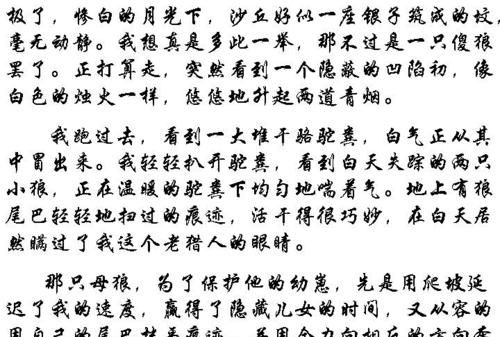 极了，惨白的月光下，沙丘好似一座银子筑成的坟，
毫无动静。我想真是多此一举，那不过是一只傻狼
罢了。正打算走，突然看到一个隐蔽的凹陷初，像
白色的烛火一样，悠悠地升起两道青烟。
我跑过去，看到一大堆干骆驼粪，白气正从其
中冒出来。我轻轻扒开驼粪，看到白天失踪的两只
小狼，正在温暖的驼粪下均匀地喘着气。地上有狼
尾巴轻轻地扫过的痕迹，活干得很巧妙，在白天居
然瞒过了我这个老猎人的眼睛。
那只母狼，为了保护他的幼崽，先是用爬坡延
迟了我的速度，赢得了隐藏儿女的时间，又从容的
用自己的尾巴抹平痕迹，并用全力向相反的方向奔